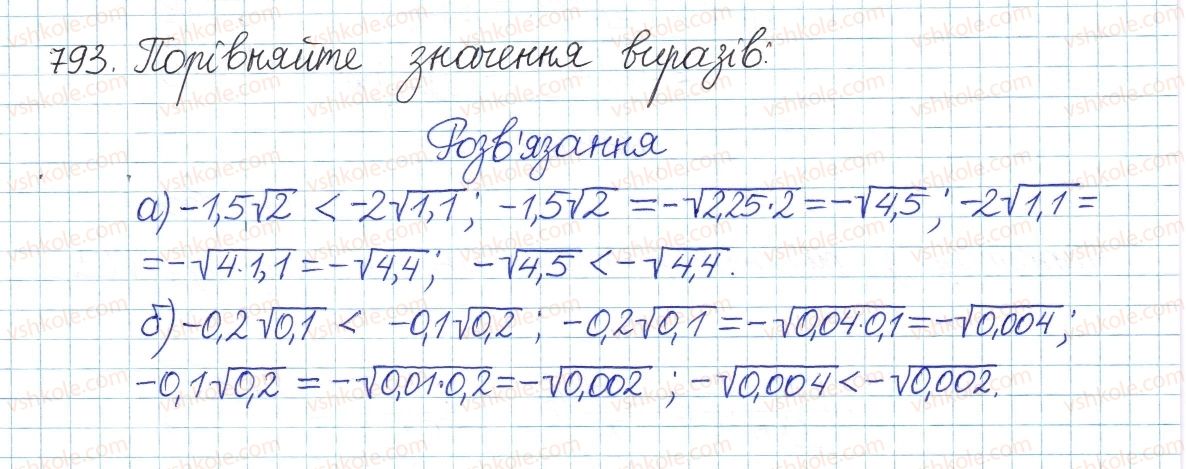 793. Порівняйте значення виразів:
Розв'язання
а) -1,5√2 < -2√1,1; -1,5√2 = -√2,25·2 = -√4,5; -2√1,1 =
= -√4·1,1 = -√4,4; -√4,5 < -√4,4.
б) -0,2√0,1 < -0,1√0,2; -0,2√0,1 = -√0,04·0,1 = -√0,004;
-0,1√0,2 = -√0,01·0,2 = -√0,002; -√0,004 < -√0,002.